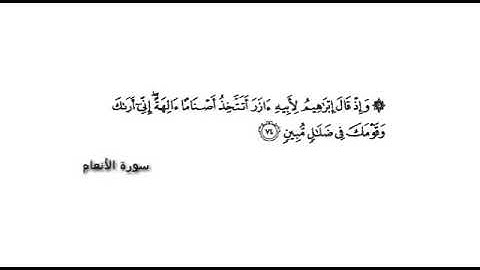 ۞ وَإِذْ قَالَ إِبْرَٰهِيمُ لِأَبِيهِ ءَازَرَ أَتَتَّخِذُ أَصْنَامًا ءَالِهَةً ۖ إِنِّىٓ أَرَىٰكَ
وَقَوْمَكَ فِى ضَلَٰلٍ مُّبِينٍ ٧٤
سورة الأنعام